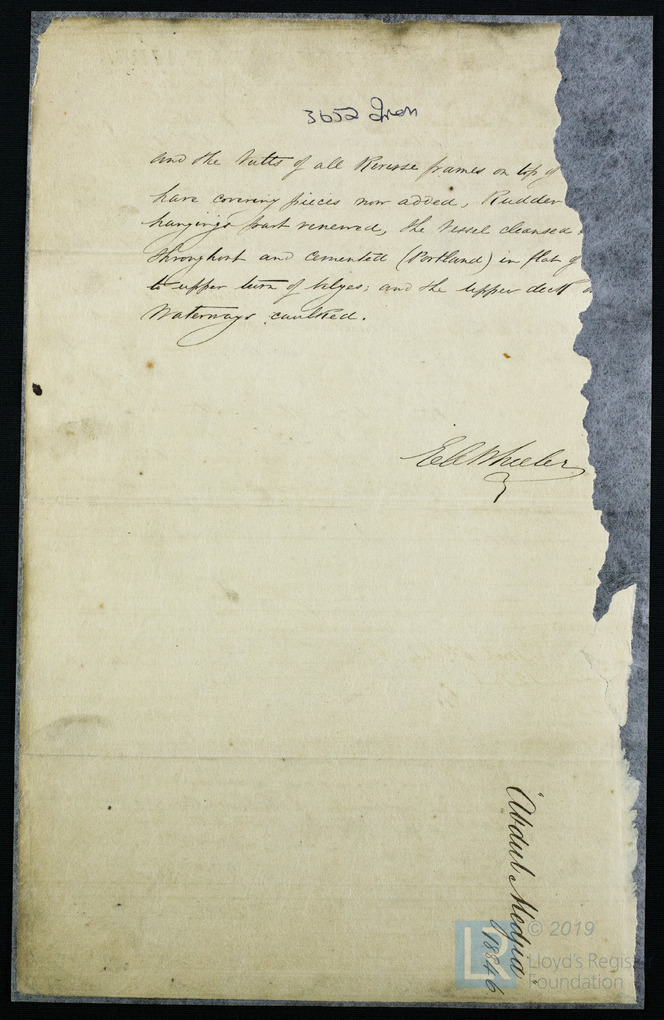 3652 Iron
and the Butts of all Reverse frames on top of
have covering pieces now added, Rudder
hangings part renewed, the Vessel cleansed
throughout and cemented (Portland) in flat of
to upper turn of bilges; and the upper deck
Waterways caulked.
Ed Wheeler
"Abdul Medjid"
18846
© 2019
Lloyd's Regis
Foundation
LR